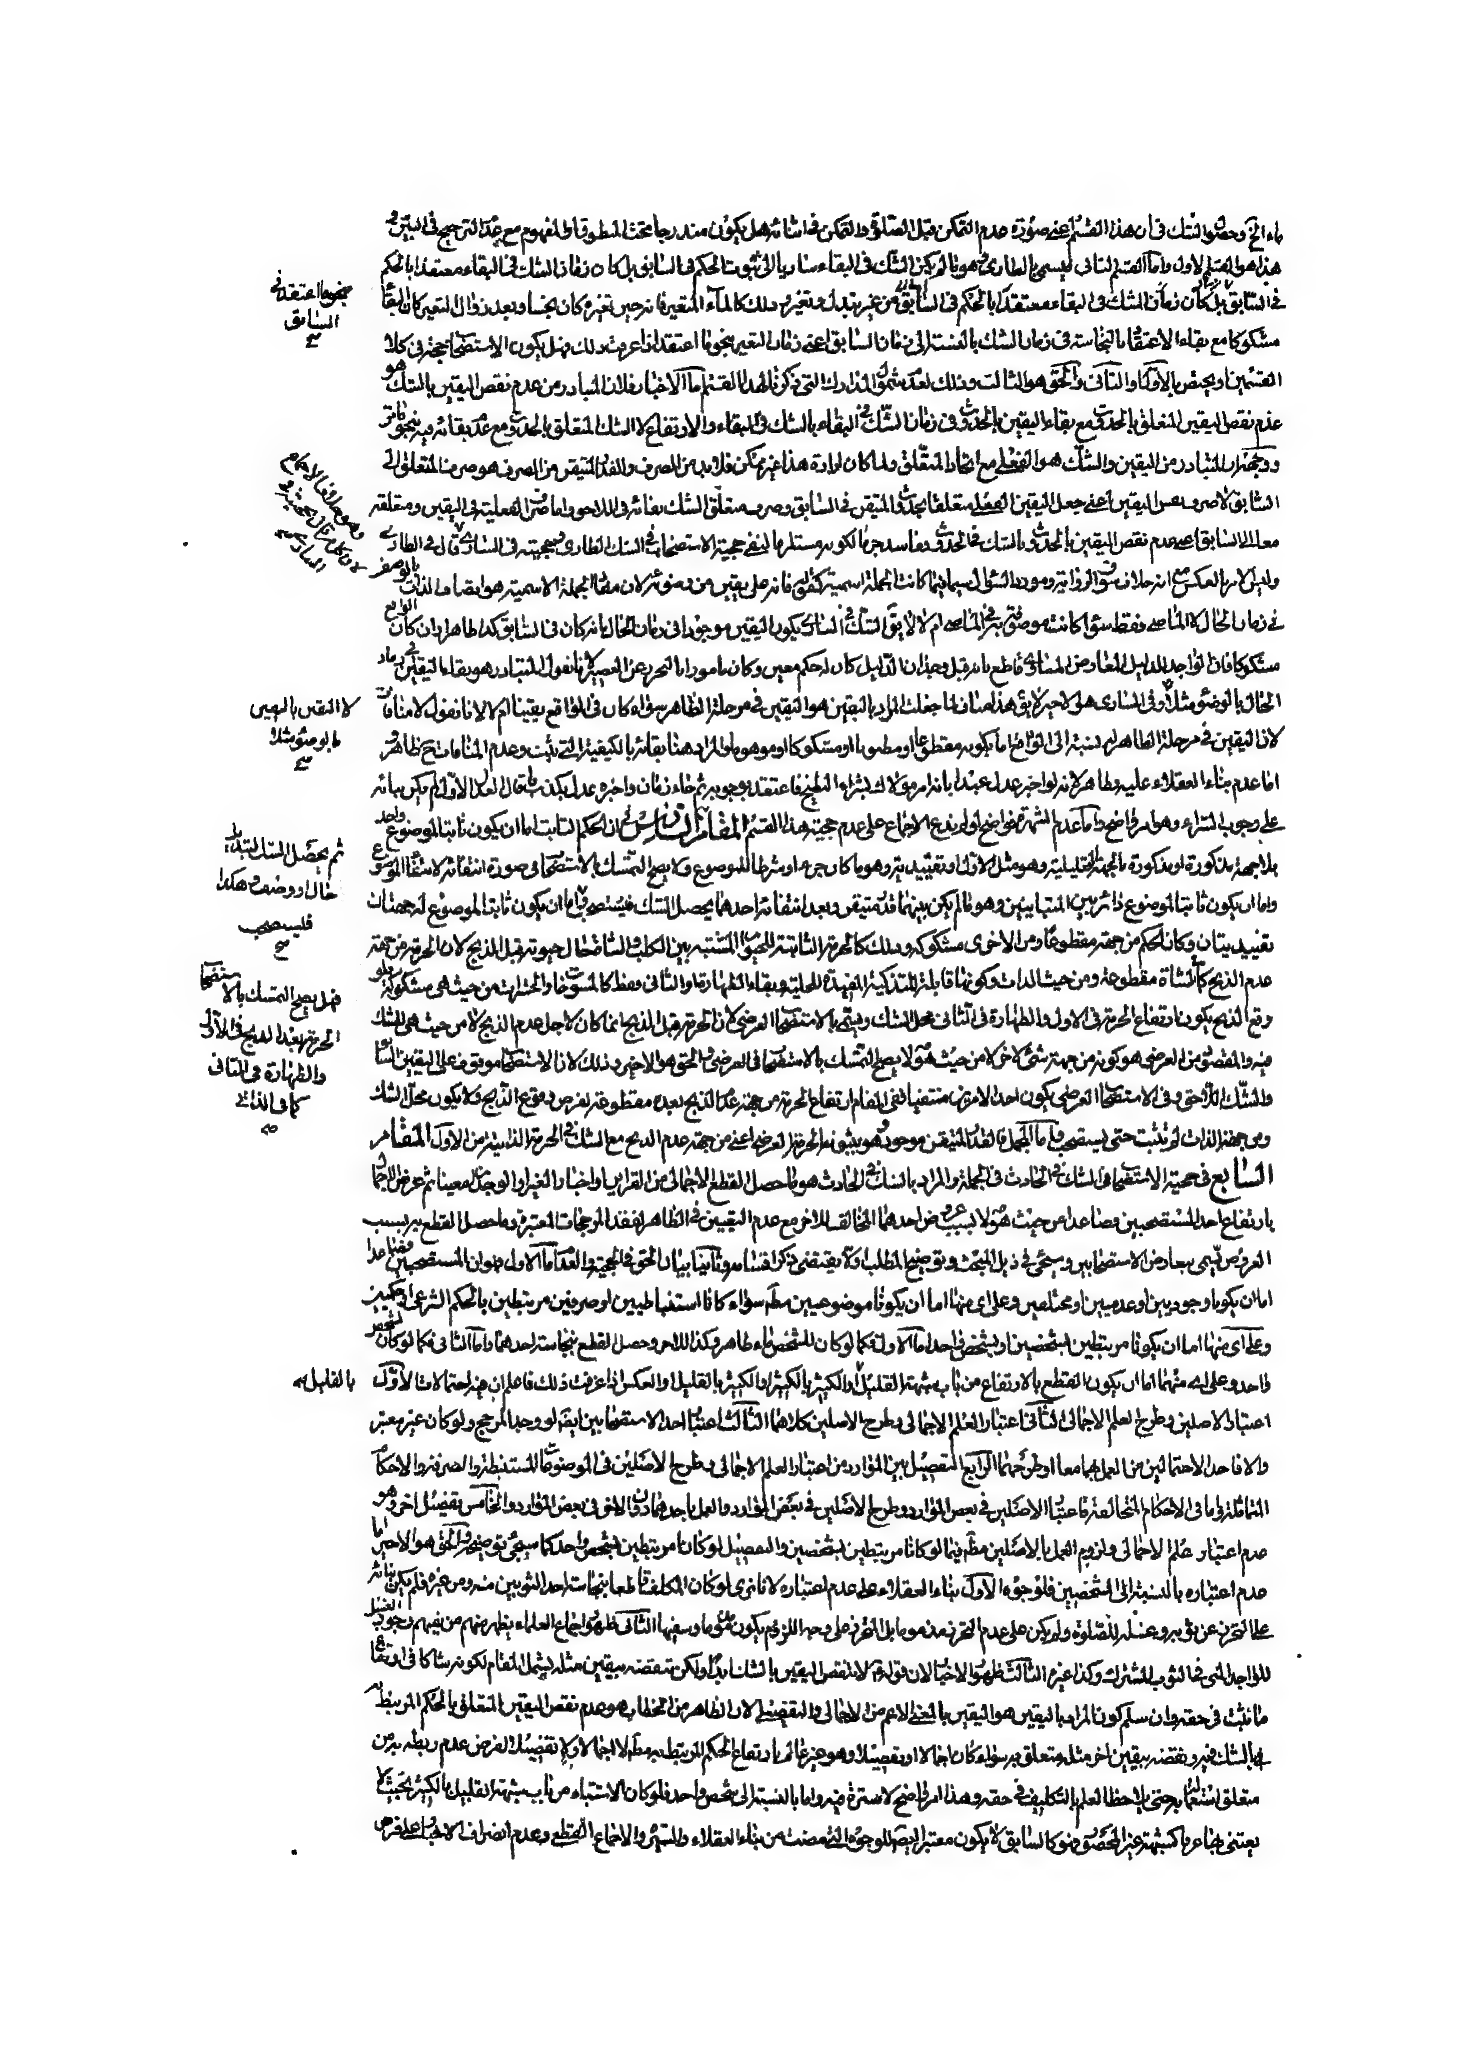 ماء الخ وحصل الشك فى ان هذا القسم اعنى صورة عدم التمكن قبل الصلوة والتمكن فى اثنائه هل يكون مندرجا تحت المنطوق او المفهوم مع عدم الترجيح فى البين
هذا هو القسم الاول واما القسم الثانى ليسمى بالطارى فهو ما لم يكن الشك فى البقاء ساريا الى ثبوت الحكم فى السابق بل كان زمان الشك فى البقاء معتقدا بالحكم
فى السابق بل كان زمان الشك فى البقاء معتقدا بالحكم فى السابق من غير تبدل وتغير وذلك كالماء المتغير فانه حين تغيره كان نجسا وبعد زوال التغير كان البقاء
مشكوكا مع بقاء الاعتقاد بالنجاسة فى زمان الشك بالنسبة الى زمان السابق اعنى زمان التغير بنحو ما اعتقد اذا عرفت ذلك فهل يكون الاستصحاب حجة فى كلا
القسمين او يختص بالاول او الثانى والحق هو الثالث وذلك لعدم شمول المدارك التى ذكرنا لهذا القسم اما الاخبار فلان المتبادر من عدم نقض اليقين بالشك هو
عدم نقض اليقين المتعلق بالحدوث مع بقاء اليقين بالحدوث فى زمان الشك فى البقاء بالشك فى البقاء والارتفاع لا الشك المتعلق بالحدوث مع عدم بقائه فيه بنحو ما مر
ووجهه ان المتبادر من اليقين والشك هو الفعلى مع اتحاد المتعلق ولما كان ارادة هذا غير ممكن فلا بد من الصرف والقدر المتيقن من الصرف هو صرف المتعلق الى
السابق لا صرف نفس اليقين اعنى جعل اليقين الفعلى متعلقا بحدوث المتيقن فى السابق وصرف متعلق الشك بقائه فى اللاحق واما صرف الفعلية فى اليقين ومتعلقه
معا الى السابق اعنى عدم نقض اليقين بالحدوث بالشك فى الحدوث ففاسد جدا لكونه مستلزما لنفى حجية الاستصحاب فى الشك الطارى وحجيته فى السارى قال فى الطارى
وليس الامر بالعكس مع انه خلاف سوق الرواية ومورد السؤال سيما فيما كانت الجملة اسمية كقوله فانه على يقين من وضوئه لان مفاد الجملة الاسمية هو اتصاف الذات بالوصف
فى زمان الحال لا الماضى فقط سواء كانت موصوفة به فى الماضى ام لا لا يق الشك فى السارى يكون اليقين موجودا فى زمان الحال بانه كان فى السابق كذا ظاهرا وان كان الواقع
مشكوكا فان الواجد للدليل المفاد من المساوى قاطع بانه قبل وجدان الدليل كان له حكم معين وكان مامورا بالتحرز عن العصير لانا نقول المتبادر هو بقاء اليقين فى زمان
الحال بالوضوء مثلا وفى السارى هو الاخير لا يق هذا مناف لما جعلت المراد باليقين هو اليقين فى مرحلة الظاهر سواء كان فى الواقع يقينا ام لا لانا نقول لا منافاة
لان اليقين فى مرحلة الظاهر بالنسبة الى الواقع اما يكون مقطوعا او مظنونا او مشكوكا او موهوما والمراد هنا بقائه بالكيفية التى ثبت وعدم المنافات ح ظاهر
اما عدم بناء العقلاء عليه فظاهر لانه لو اخبر عدل عبدا بانه امر مولاك بشراء البطيخ فاعتقد بوجوبه ثم جاء زمان واخبره عدل بكذب ما قال العدل الاول لم يكن بنائه
على وجوب الشراء وهو امر واضح واما عدم الشهرة فواضح اولا وندعى الاجماع على عدم حجية هذا القسم المقام السادس فى ان الحكم الثابت اما ان يكون ثابتا لموضوع واحد
بلا جهة مذكورة او مذكورة بالجهة التعليلية وهو مثل الاول او تقييدية وهو ما كان جزء او شرطا للموضوع ولا يصح التمسك بالاستصحاب فى صورة انتفائه لانتفاء الموضوع
واما ان يكون ثابتا لموضوع دائر بين المتباينين وهو ما لم يكن بينهما قدر متيقن وبعد انتفاء احدهما يحصل الشك فيستصحب واما ان يكون ثابتا لموضوع له جهتان
تقييديتان وكان الحكم من جهة مقطوعا ومن الاخرى مشكوكة وذلك كالحرمة الثابتة للحيوان المشتبه بين الكلب والشاة حال حيوته قبل الذبح لان الحرمة من جهة
عدم الذبح كالشاة مقطوعة ومن حيث الذات وكونها قابلة للتذكية المفيدة للحلية وبقاء الطهارة او الثانى فقط كالمسوخات والحشرات من حيث هى مشكوكة فلو
وقع الذبح يكون ارتفاع الحرمة فى الاول والطهارة فى الثانى محل الشك ويسمى بالاستصحاب العرضى لان الحرمة قبل الذبح انما كان لاجل عدم الذبح لا من حيث هى للشك
فيه والمقصود من العرضى هو كونه من جهة شئ اخر لا من حيث هو لا يصح التمسك بالاستصحاب العرضى والحق هو الاخير وذلك لان الاستصحاب موقوف على اليقين السابق
والشك اللاحق وفى الاستصحاب العرضى يكون احد الامرين منتفيا ففى المقام ارتفاع الحرمة من جهة عدم الذبح بعده مقطوعة لفرض وقوع الذبح ولا يكون محل الشك
ومن جهة الذات لم تثبت حتى يستصحب واما الجمل فالقدر المتيقن موجود وهو ثبوت الحرمة العرضى اعنى من جهة عدم الذبح مع الشك فى الحرمة الذاتية من الاول المقام
السابع فى حجية الاستصحاب فى الشك فى الحادث فى الجملة والمراد بالشك فى الحادث هو ما حصل القطع الاجمالى من القراين واخبار الغير او الوجدان معينا ثم عرض الاجمال
بارتفاع احد المستصحبين فصاعدا من حيث هو لا بسبب عروض احدهما المخالف للاخر مع عدم اليقين فى الظاهر لفقد المرجحات المعتبرة وما حصل القطع به بسبب
العروض يسمى بتعارض الاستصحابين وسيجئ فى ذيل المبحث وتوضيح المطلب اولا يقتضى ذكر اقسامه وثانيا بيان الحق فى الحجية والعدم اما الاول فهو ان المستصحبين فصاعدا
اما ان يكونا وجوديين او عدميين او مختلفين وعلى اى منها اما ان يكونا موضوعيين مط سواء كانا استنباطيين او صرفين مرتبطين بالحكم الشرعى او حكميين
وعلى اى منها اما ان يكونا مرتبطين بشخصين او بشخص واحد اما الاول فكما لو كان للشخص ماء طاهر وكذا للاخر وحصل القطع بنجاسة احدهما واما الثانى فكما لو كان لشخص
واحد وعلى اى منهما اما ان يكون القطع بالارتفاع من باب شبهة القليل او الكثير بالكثير او الكثير بالقليل او العكس اذا عرفت ذلك فاعلم ان فيه احتمالات الاول
اعتبار الاصلين وطرح العلم الاجمالى الثانى اعتبار العلم الاجمالى وطرح الاصلين كلاهما الثالث اعتبار احد الاستصحابين ايض لو وجد المرجح ولو كان غير معتبر
والا فاحد الاحتمالين من العمل بهما معا او طرحهما الرابع التفصيل بين الموارد من اعتبار العلم الاجمالى وطرح الاصلين فى الموضوعات المستنبطة والصرفة والاحكام
المتماثلة واما فى الاحكام المتخالفة فاعتبار الاصلين فى بعض الموارد وطرح الاصلين فى بعض الموارد والعمل باحدهما دون الاخر فى بعض الموارد والخامس تفصيل اخر وهو
عدم اعتبار علم الاجمالى ولزوم العمل بالاصلين مط فيما لو كانا مرتبطين بشخصين والتفصيل لو كان مرتبطين بشخص واحد كما سيجئ توضيحه والحق هو الاخير اما
عدم اعتباره بالنسبة الى الشخصين فلوجوه الاول بناء العقلاء على عدم اعتباره لانا نرى لو كان المكلف قاطعا بنجاسة احد الثوبين منه ومن غيره فلم يكن بنائه
على التحرز عن ثوبه وغسله للصلوة ولم يكن على عدم التحرز مذموما بل التحرز على وجه اللزوم يكون مذموما وسفيها الثانى ظهور اجماع العلماء يظهر منهم من نفيهم وجوب الغسل
للواجد المنى فى الثوب المشترك وكذا غيره الثالث ظهور الاخبار لان قوله لا تنقض اليقين بالشك ابدا ولكن تنقضه بيقين مثله يشمل المقام لكونه شاكا فى ارتفاع
ما ثبت فى حقه وان سلم كون المراد باليقين هو اليقين بالمعنى الاعم من الاجمالى والتفصيلى لان الظاهر من الخطاب هو عدم نقض اليقين المتعلق بالحكم المرتبط به
بالشك فيه ونقضه بيقين اخر مثله متعلق به سواء كان اجمالا او تفصيلا وهو غير عالم بارتفاع الحكم المرتبط به مط لا اجمالا ولا تفصيلا لفرض عدم ربطه بمن
متعلق استصحابه حتى يلاحظ العلم بالتكليف فى حقه وهذا امر واضح لا سترة فيه واما بالنسبة الى شخص واحد فلو كان الاشتباه من باب شبهة القليل بالكثير بحيث لا
يعتنى بها عرفا كشبهة غير المحصور فهو كالسابق لا يكون معتبرا ايض للوجوه التى مضت من بناء العقلاء والسيرة والاجماع القطعى وعدم انصراف الاخبار على فرض
بنحو ما اعتقد فى
السابق
لا اليقين باليقين
بالوضوء مثلا
ثم يحصل الشك لتبدل
حال او وصف وهكذا
فليستصحب
فهل يصح التمسك بالاستصحاب
الحرمة بعد الذبح فى الاول
والطهارة فى الثانى
كما فى الذاتى
بالقليل